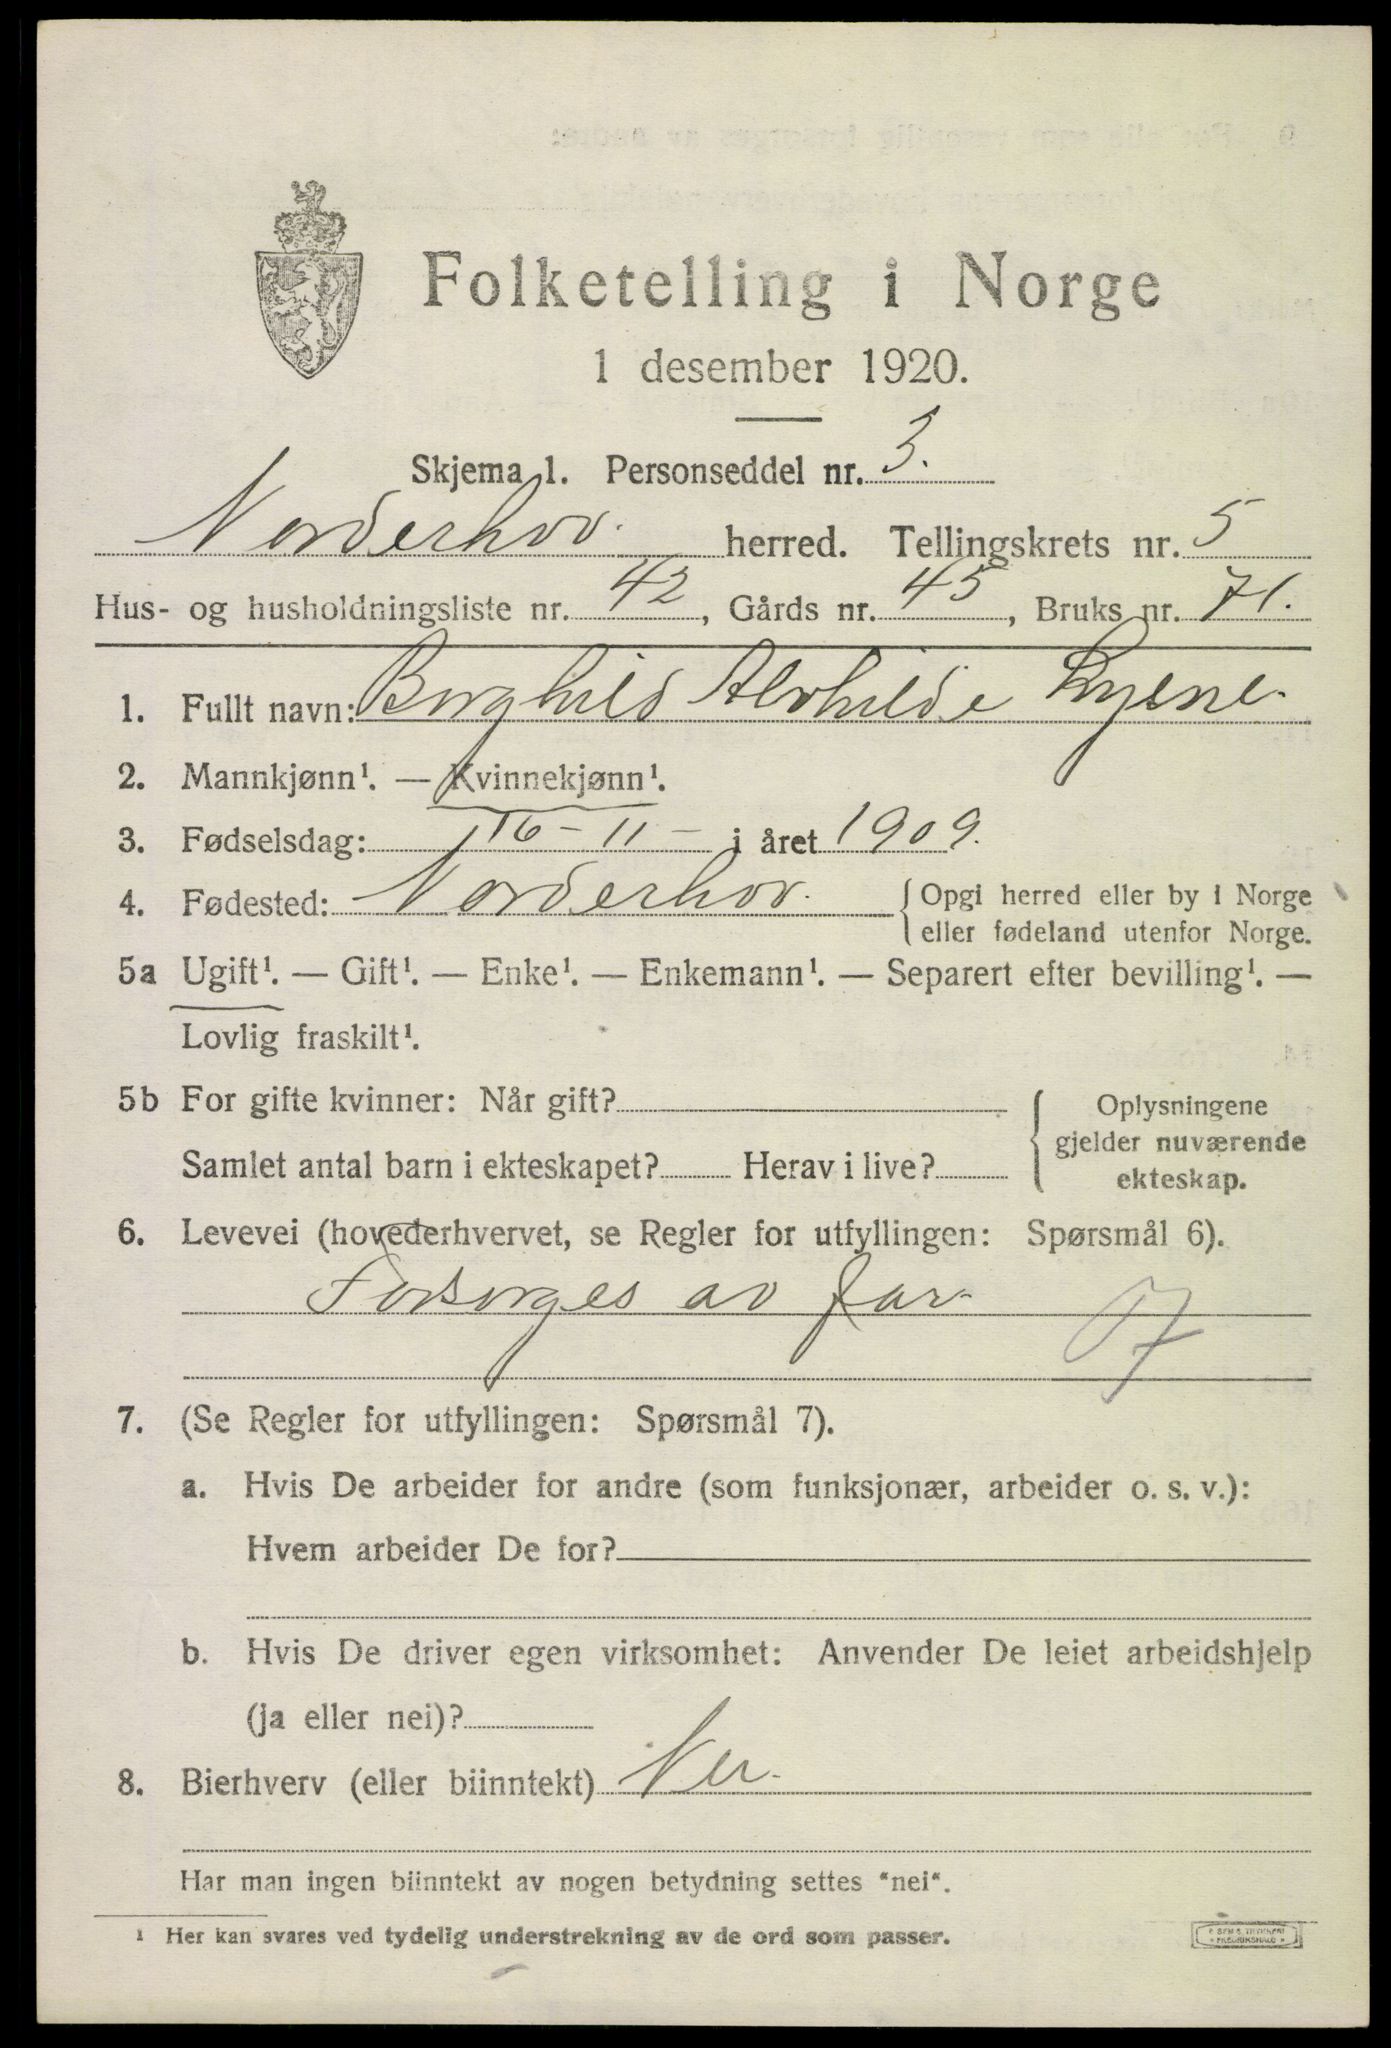 Folketelling i Norge
1 desember 1920.
Skjema 1. Personseddel nr. 3.
Norderhov. herred. Tellingskrets nr. 5
Hus- og husholdningsliste nr. 42, Gårds nr. 45, Bruks nr. 71.
1. Fullt navn: Borghild Alvhilde
2. Mannkjønn¹. — Kvinnekjønn¹.
3. Fødselsdag: 16 - 11 - i året 1909.
4. Fødested: Norderhov. { Opgi herred eller by i Norge
eller fødeland utenfor Norge.
5a Ugift¹. — Gift¹. — Enke¹. — Enkemann¹. — Separert efter bevilling¹. —
Lovlig fraskilt¹.
5b For gifte kvinner: Når gift?
Samlet antal barn i ekteskapet? Herav i live?
{ Oplysningene
gjelder nuværende
ekteskap.
6. Levevei (hovederhvervet, se Regler for utfyllingen: Spørsmål 6).
Forsorges av far.
7. (Se Regler for utfyllingen: Spørsmål 7).
a. Hvis De arbeider for andre (som funksjonær, arbeider o. s. v.):
Hvem arbeider De for?
b. Hvis De driver egen virksomhet: Anvender De leiet arbeidshjelp
(ja eller nei)?
8. Bierhverv (eller biinntekt) Nei.
Har man ingen biinntekt av nogen betydning settes "nei".
¹ Her kan svares ved tydelig understrekning av de ord som passer.